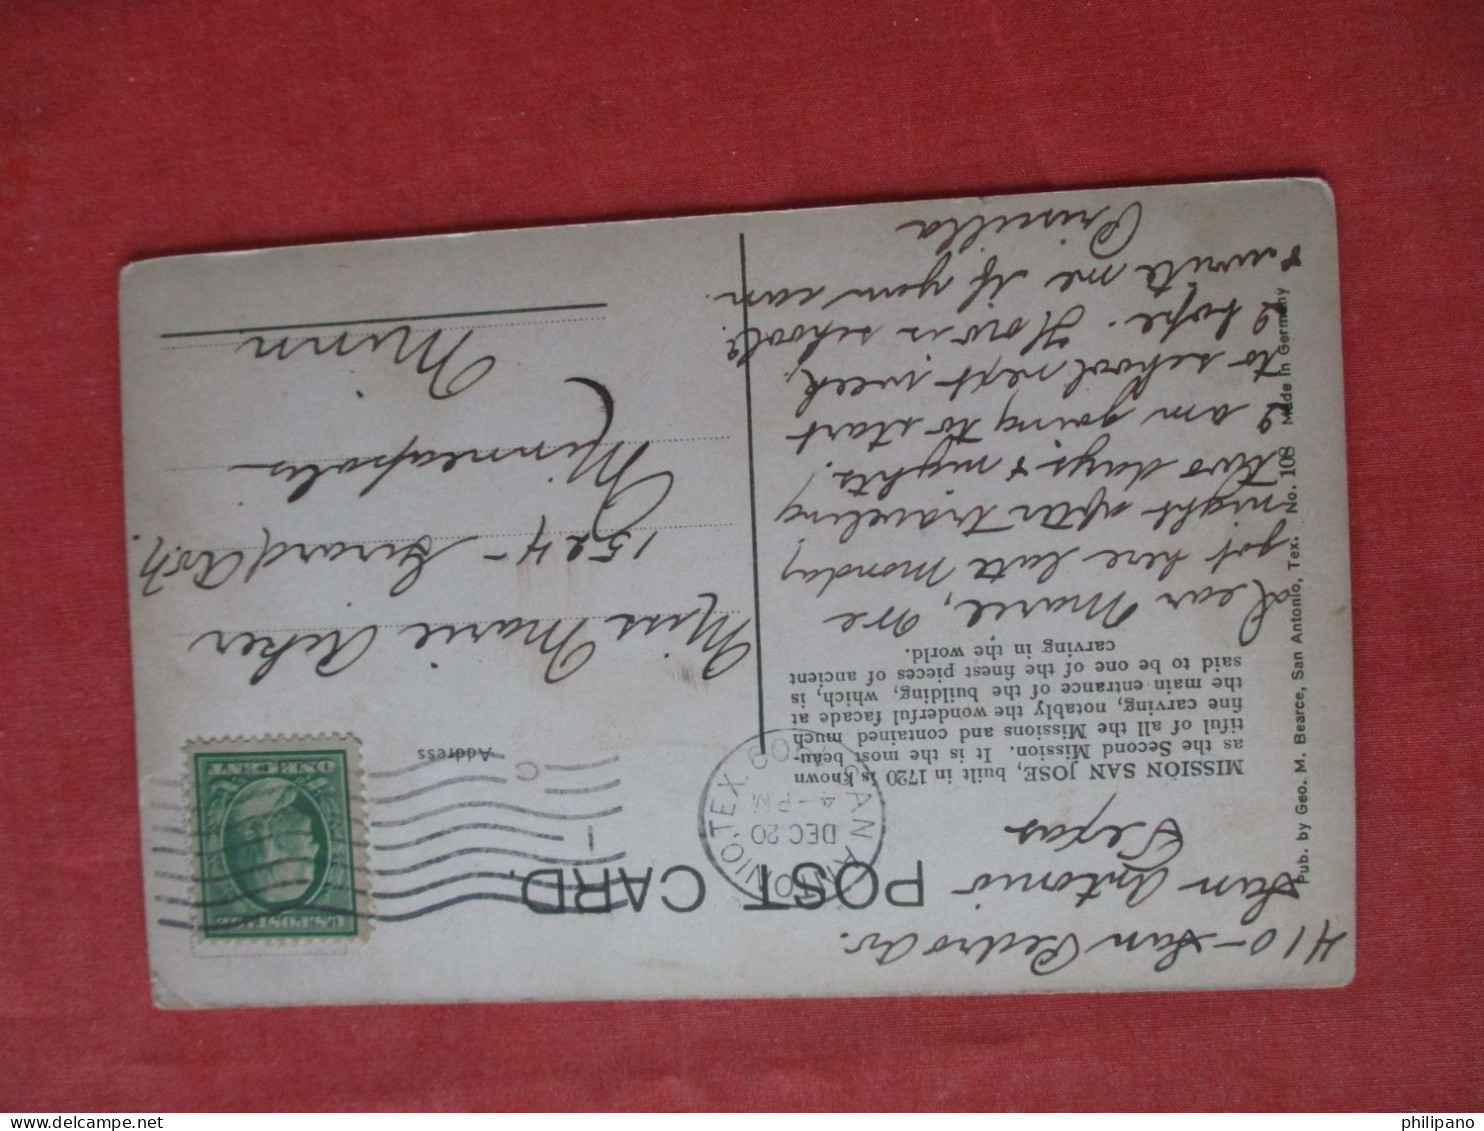 410 - San Pedro Av.
San Antonio
Texas
POST CARD.
SAN ANTONIO, TEX.
DEC 20
4-PM
1909
MISSION SAN JOSE, built in 1720 is known
as the Second Mission. It is the most beau-
tiful of all the Missions and contained much
fine carving, notably the wonderful facade at
the main entrance of the building, which, is
said to be one of the finest pieces of ancient
carving in the world.
Dear Marie, We
got here late Monday
night after traveling
two days & nights!
I am going to start
to school next week,
I hope. How is school?
& write me if you can.
Priscilla
Pub. by Geo. M. Bearce, San Antonio, Tex. No. 108 Made in Germany
U.S. POSTAGE
ONE CENT
Address
Miss Marie Acker
1524 - Girard Av. N.
Minneapolis
Minn.
philipano